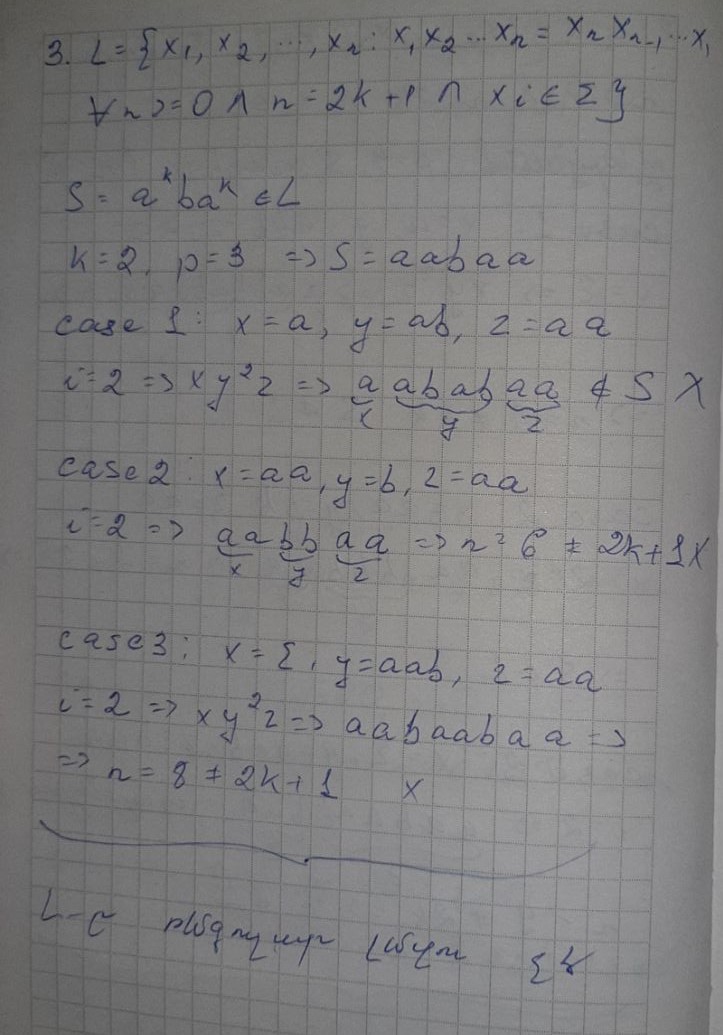 3. L = { x₁, x₂, ..., xₙ : x₁ x₂ ... xₙ = xₙ xₙ₋₁ ... x₁
∀n >= 0 ∧ n = 2k + 1 ∧ xi ∈ Σ }
S = aᵏbaᵏ ∈ L
k = 2, p = 3 => S = aabaa
case 1: x = a, y = ab, z = aa
i = 2 => xy²z => a abab aa ∉ S X
x y z
case 2: x = aa, y = b, z = aa
i = 2 => aa bb aa => n = 6 ≠ 2k+1 X
x y z
case 3: x = Σ, y = aab, z = aa
i = 2 => xy²z => aabaabaa =>
=> n = 8 ≠ 2k + 1 X
L-ը ռեգուլյար լեզու չէ